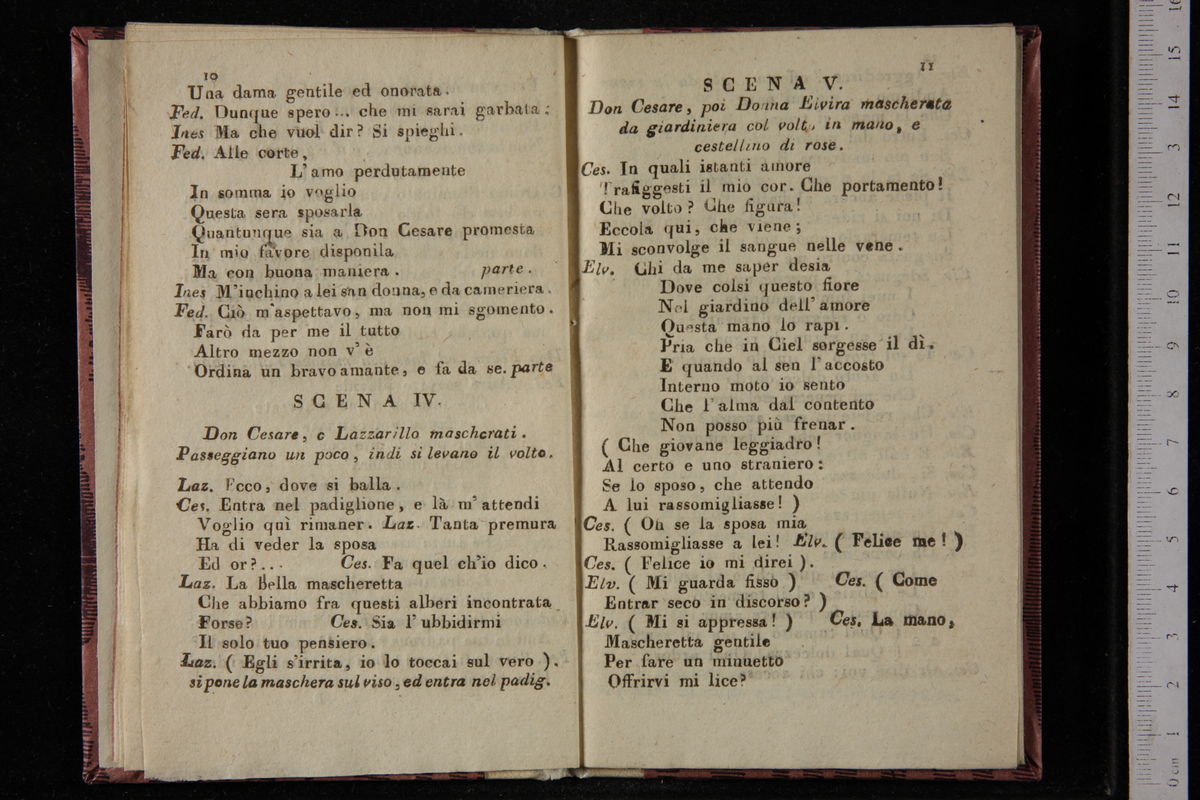 10
Una dama gentile ed onorata.
Fed. Dunque spero ... che mi sarai garbata;
Ines Ma che vuol dir? Si spieghi.
Fed. Alle corte,
L'amo perdutamente
In somma io voglio
Questa sera sposarla
Quantunque sia a Don Cesare promesta
In mio favore disponila
Ma con buona maniera. parte.
Ines M'inchino a lei san donna, e da cameriera.
Fed. Ciò m'aspettavo, ma non mi sgomento.
Farò da per me il tutto
Altro mezzo non v'è
Ordina un bravo amante, e fa da se. parte
SCENA IV.
Don Cesare, e Lazzarillo mascherati.
Passeggiano un poco, indi si levano il volto.
Laz. Ecco, dove si balla.
Ces. Entra nel padiglione, e là m'attendi
Voglio quì rimaner. Laz. Tanta premura
Ha di veder la sposa
Ed or?... Ces. Fa quel ch'io dico.
Laz. La Bella mascheretta
Che abbiamo fra questi alberi incontrata
Forse? Ces. Sia l'ubbidirmi
Il solo tuo pensiero.
Laz. ( Egli s'irrita, io lo toccai sul vero ).
si pone la maschera sul viso, ed entra nel padig.
11
SCENA V.
Don Cesare, poi Donna Elvira mascherata
da giardiniera col volto in mano, e
cestellino di rose.
Ces. In quali istanti amore
Trafiggesti il mio cor. Che portamento!
Che volto? Che figura!
Eccola qui, che viene;
Mi sconvolge il sangue nelle vene.
Elv. Chi da me saper desia
Dove colsi questo fiore
Nel giardino dell'amore
Questa mano lo rapì.
Pria che in Ciel sorgesse il dì.
E quando al sen l'accosto
Interno moto io sento
Che l'alma dal contento
Non posso più frenar.
( Che giovane leggiadro!
Al certo e uno straniero:
Se lo sposo, che attendo
A lui rassomigliasse! )
Ces. ( Oh se la sposa mia
Rassomigliasse a lei! Elv. ( Felice me! )
Ces. ( Felice io mi direi ).
Elv. ( Mi guarda fisso ) Ces. ( Come
Entrar seco in discorso? )
Elv. ( Mi si appressa! ) Ces. La mano,
Mascheretta gentile
Per fare un minuetto
Offrirvi mi lice?
0 cm 1 2 3 4 5 6 7 8 9 10 11 12 13 14 15 16